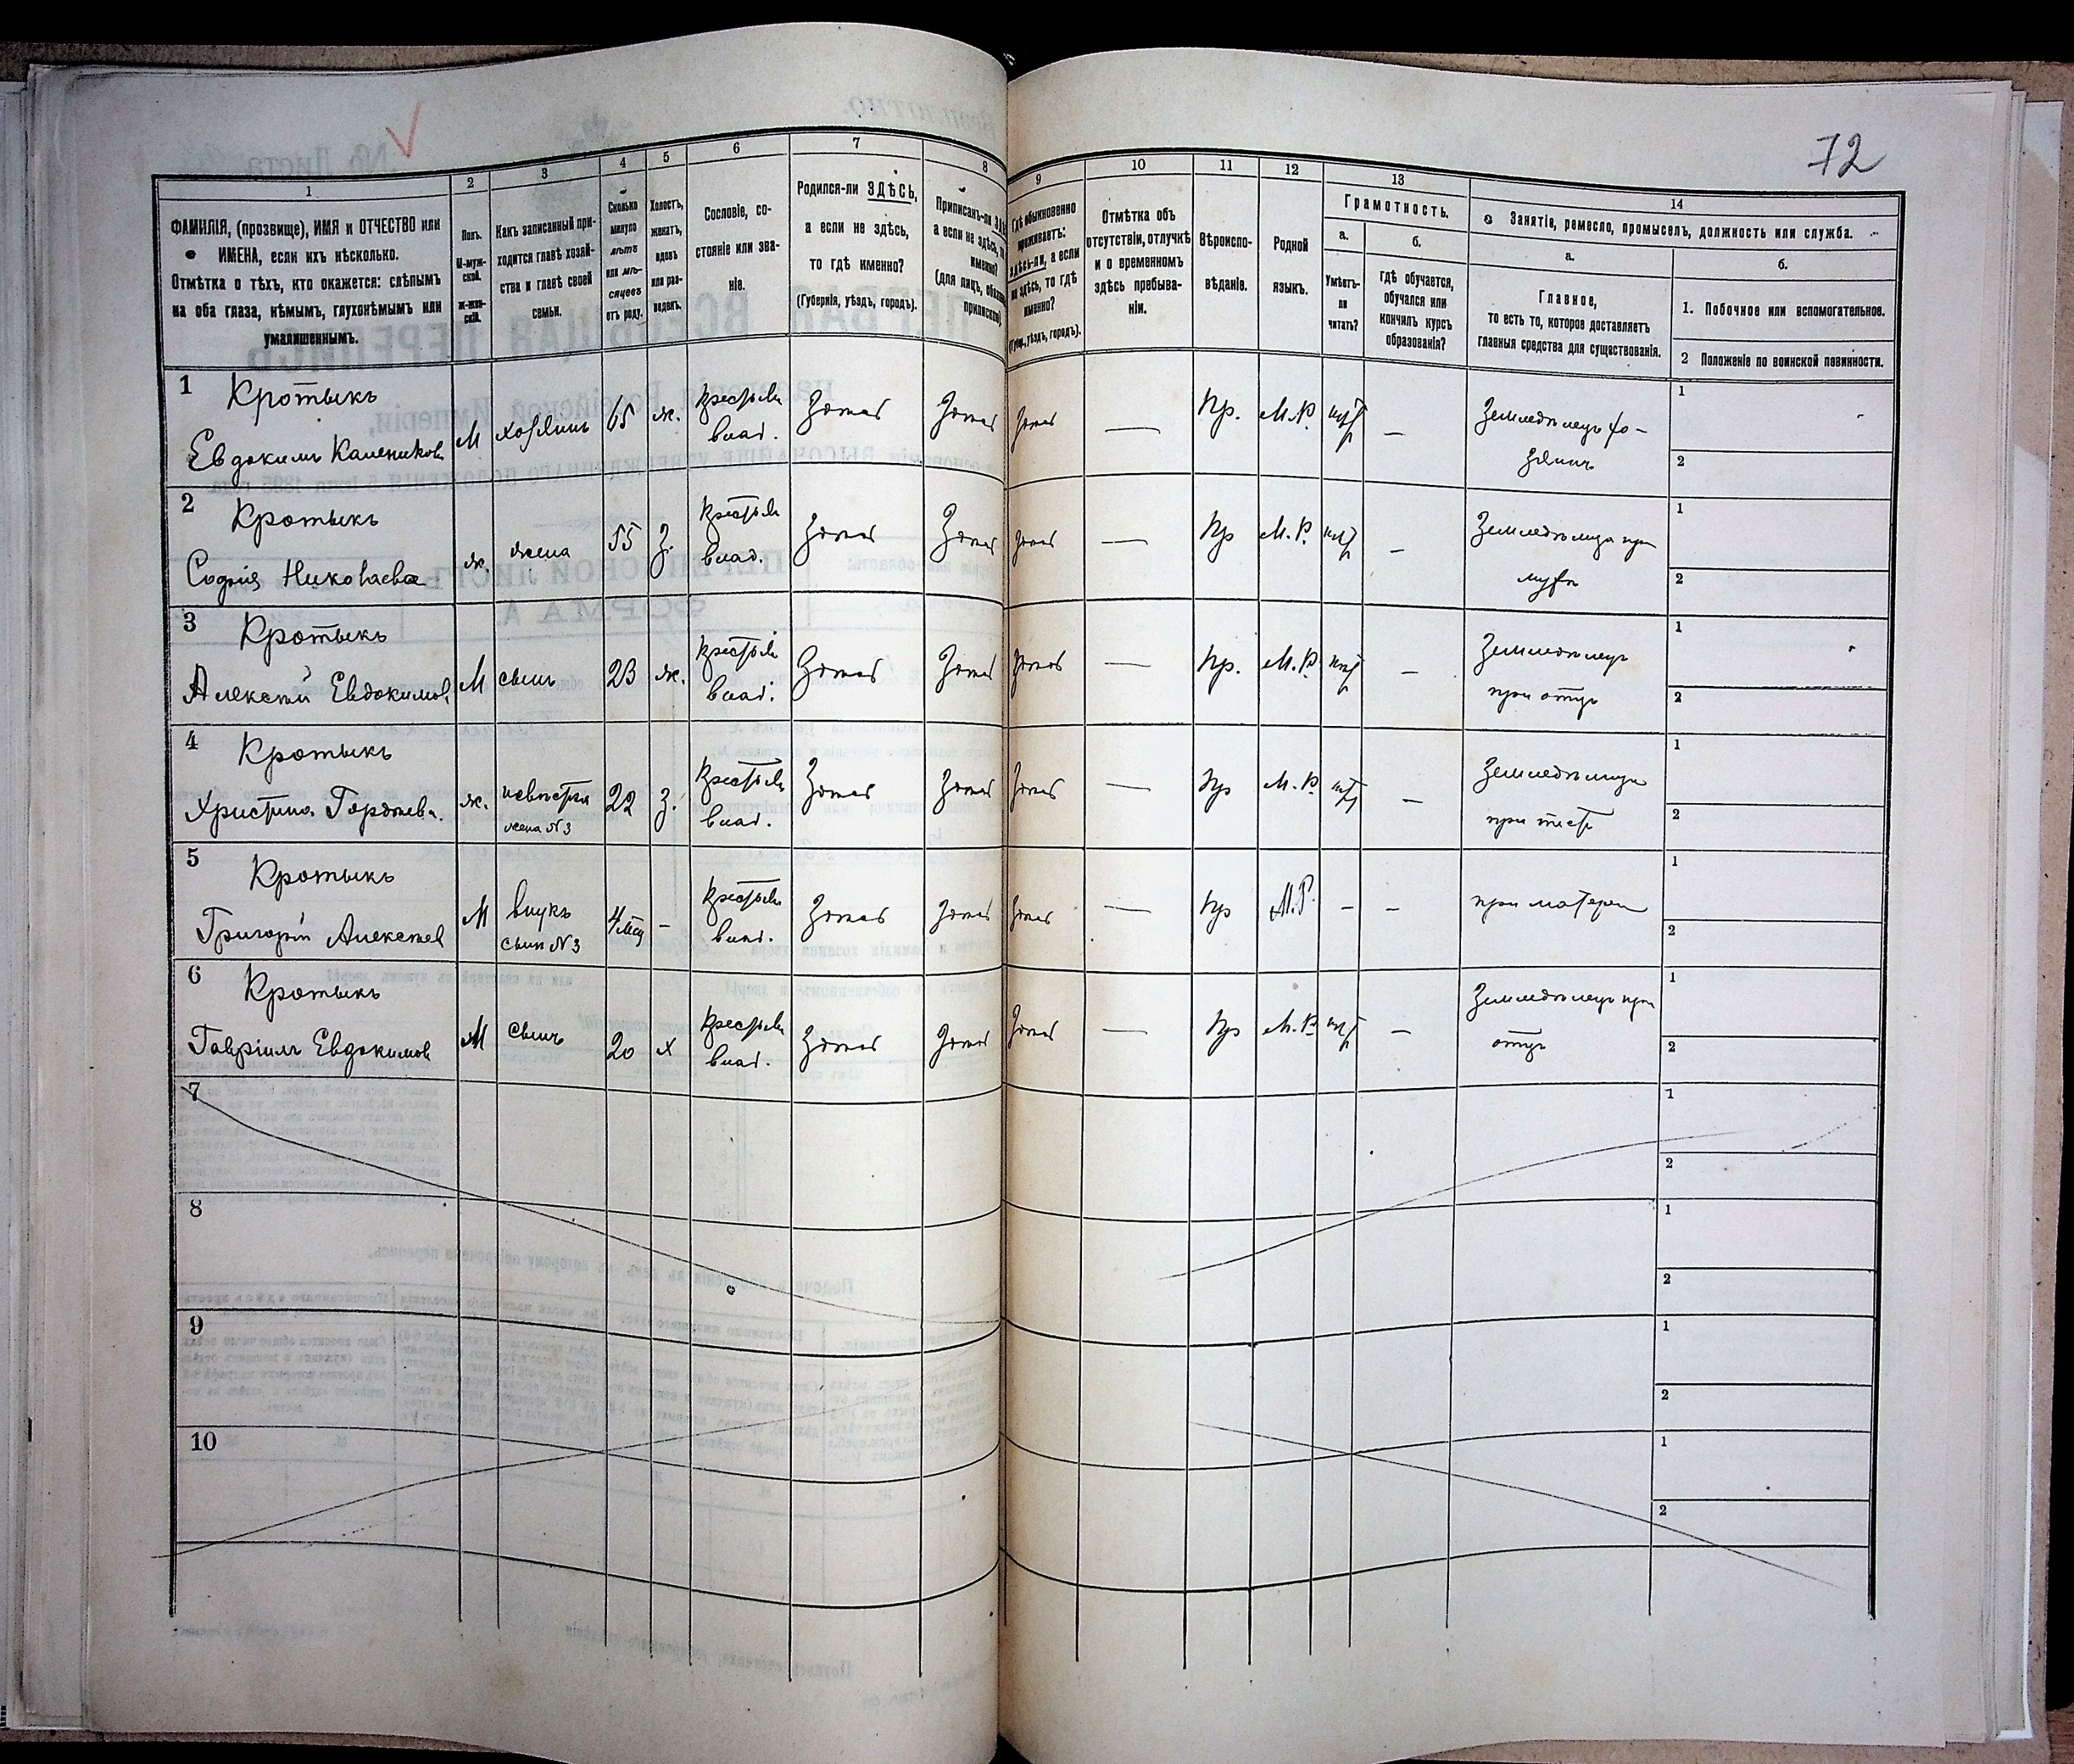 72
1
ФАМИЛІЯ, (прозвище), ИМЯ и ОТЧЕСТВО или
ИМЕНА, если ихъ нѣсколько.
Отмѣтка о тѣхъ, кто окажется: слѣпымъ
на оба глаза, нѣмымъ, глухонѣмымъ или
умалишеннымъ.
2
Полъ.
М-муж-
ской.
Ж-жен-
скій.
3
Какъ записанный при-
ходится главѣ хозяй-
ства и главѣ своей
семьи.
4
Сколько
минуло
лѣтъ
или мѣ-
сяцевъ
отъ роду.
5
Холостъ,
женатъ,
вдовъ
или раз-
веденъ.
6
Сословіе, со-
стояніе или зва-
ніе.
7
Родился-ли ЗДѢСЬ,
а если не здѣсь,
то гдѣ именно?
(Губернія, уѣздъ, городъ).
8
Приписанъ-ли
а если не здѣсь,
именно?
(для лицъ,
9
Гдѣ обыкновенно
проживаетъ:
здѣсь-ли, а если
не здѣсь, то гдѣ
именно?
уѣздъ, городъ).
10
Отмѣтка объ
отсутствіи, отлучкѣ
и о временномъ
здѣсь пребыва-
ніи.
11
Вѣроиспо-
вѣданіе.
12
Родной
языкъ.
13
Грамотность.
а.
Умѣетъ-
ли
читать?
б.
гдѣ обучается,
обучался или
кончилъ курсъ
образованія?
14
Занятіе, ремесло, промыселъ, должность или служба.
а.
Главное,
то есть то, которое доставляетъ
главныя средства для существованія.
б.
1. Побочное или вспомогательное.
2 Положеніе по воинской повинности.
1 Кротыкъ
Евдокимъ Калениковъ М хозяинъ 65 ж. владѣ. Здѣсь Здѣсь Здѣсь — Пр. М.Р. — Земледѣлецъ хо-
зяинъ
1
2
2 Кротыкъ
Софія Николаева ж. жена 55 З. Здѣсь Здѣсь Здѣсь — Пр М.Р. — при
мужѣ
1
2
3 Кротыкъ
Алексѣй Евдокимов М сынъ 23 ж. Здѣсь Здѣсь Здѣсь — Пр. М.Р. — Земледѣлецъ
при отцѣ
1
2
4 Кротыкъ
Христина Гордѣева. ж. невѣстка
жена №3 22 З. Здѣсь Здѣсь Здѣсь — Пр М.Р. —
1
2
5 Кротыкъ
Григорій Алексѣев М внукъ
сынъ №3 4 – Здѣсь Здѣсь Здѣсь — Пр М.Р. – – при матери
1
2
6 Кротыкъ
Гавріилъ Евдокимов М сынъ 20 х Здѣсь Здѣсь Здѣсь — Пр М.Р. — Земледѣлецъ при
отцѣ
1
2
7
1
2
8
1
2
9
1
2
10
1
2